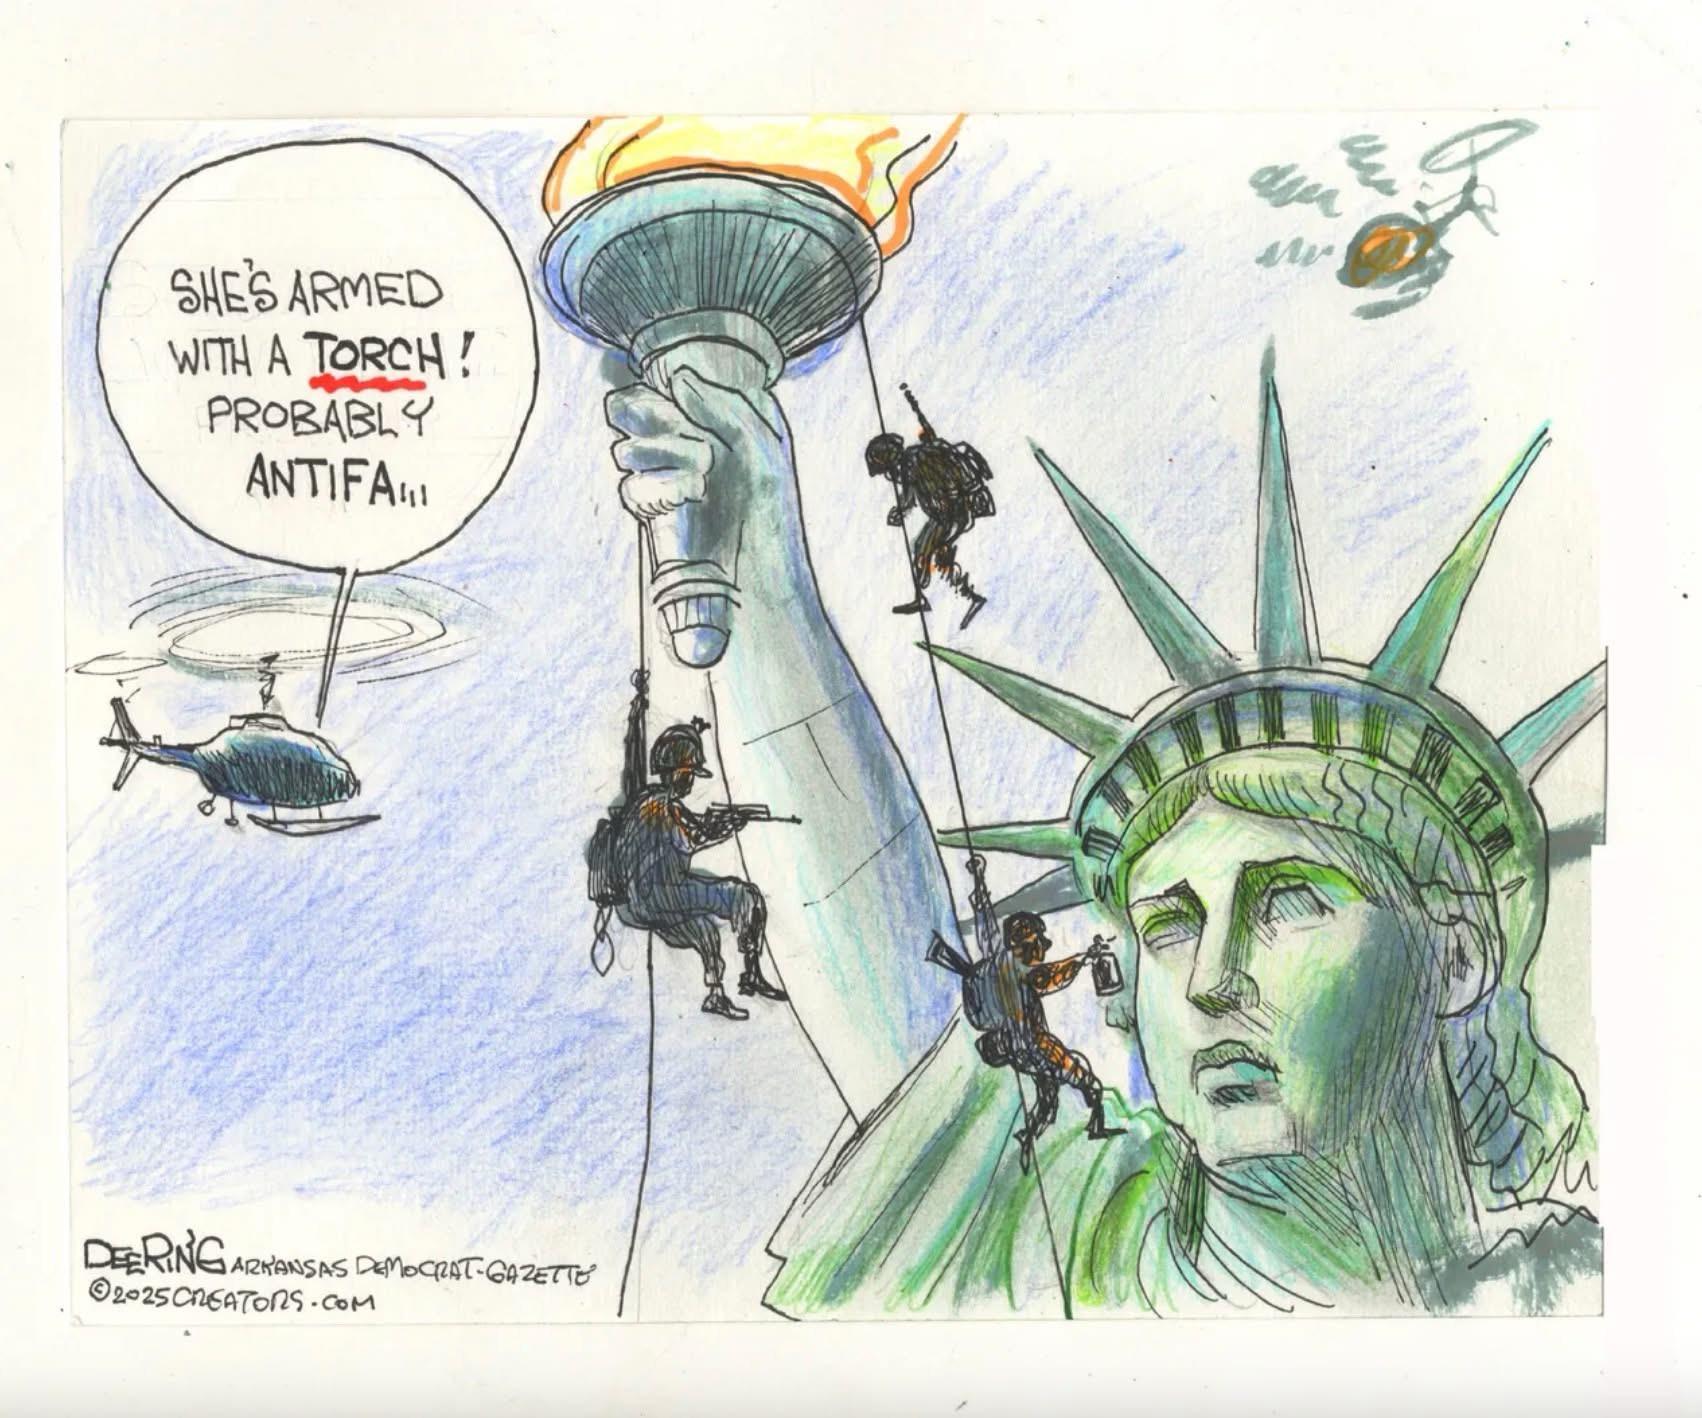 SHE'S ARMED
WITH A TORCH!
PROBABLY
ANTIFA...
DEERING ARKANSAS DEMOCRAT-GAZETTE
©2025 CREATORS.COM